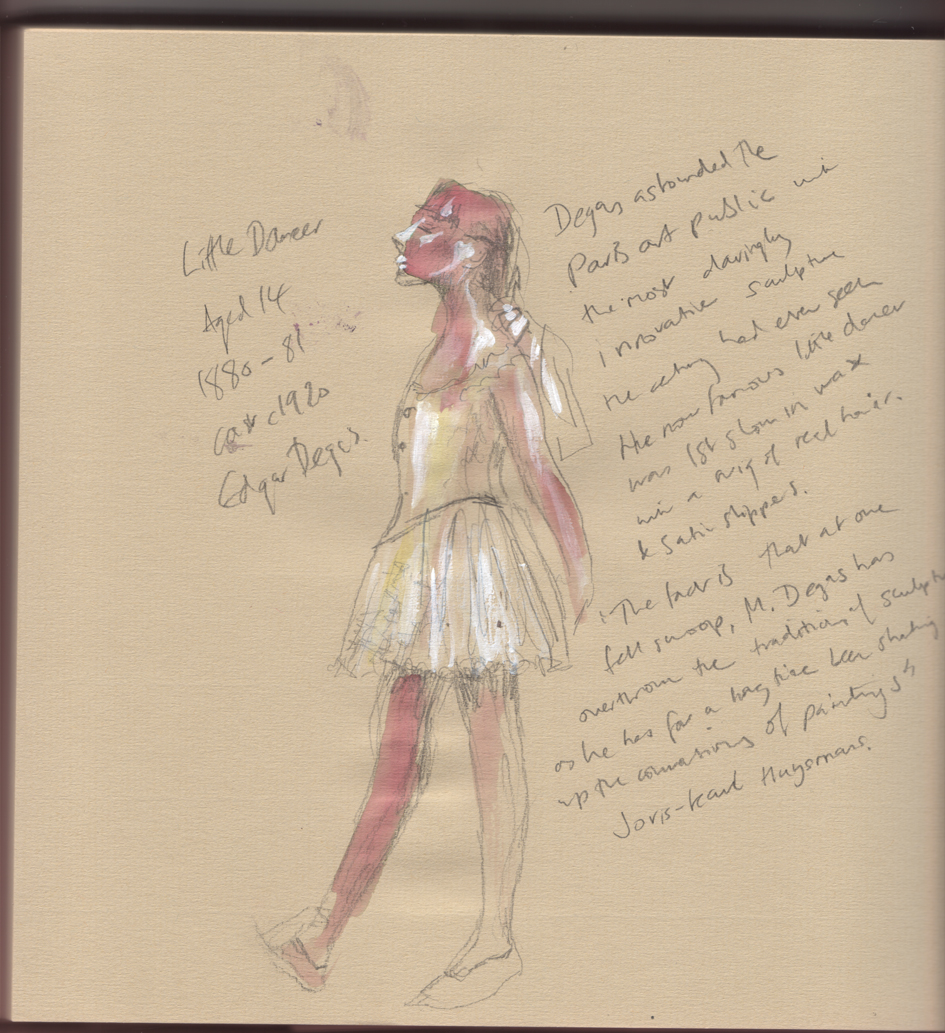 Little Dancer
Aged 14
1880-81
cast c1920
Edgar Degas.
Degas astounded the
Paris art public with
the most daringly
innovative sculpture
the century had ever seen
the now famous little dancer
was 1st shown in wax
with a wig of real hair.
& satin slippers.
"The fact is that at one
fell swoop, M. Degas has
overthrown the traditions of sculpture
as he has for a long time been shaking
up the conventions of paintings"
Joris-Karl Huysmans.